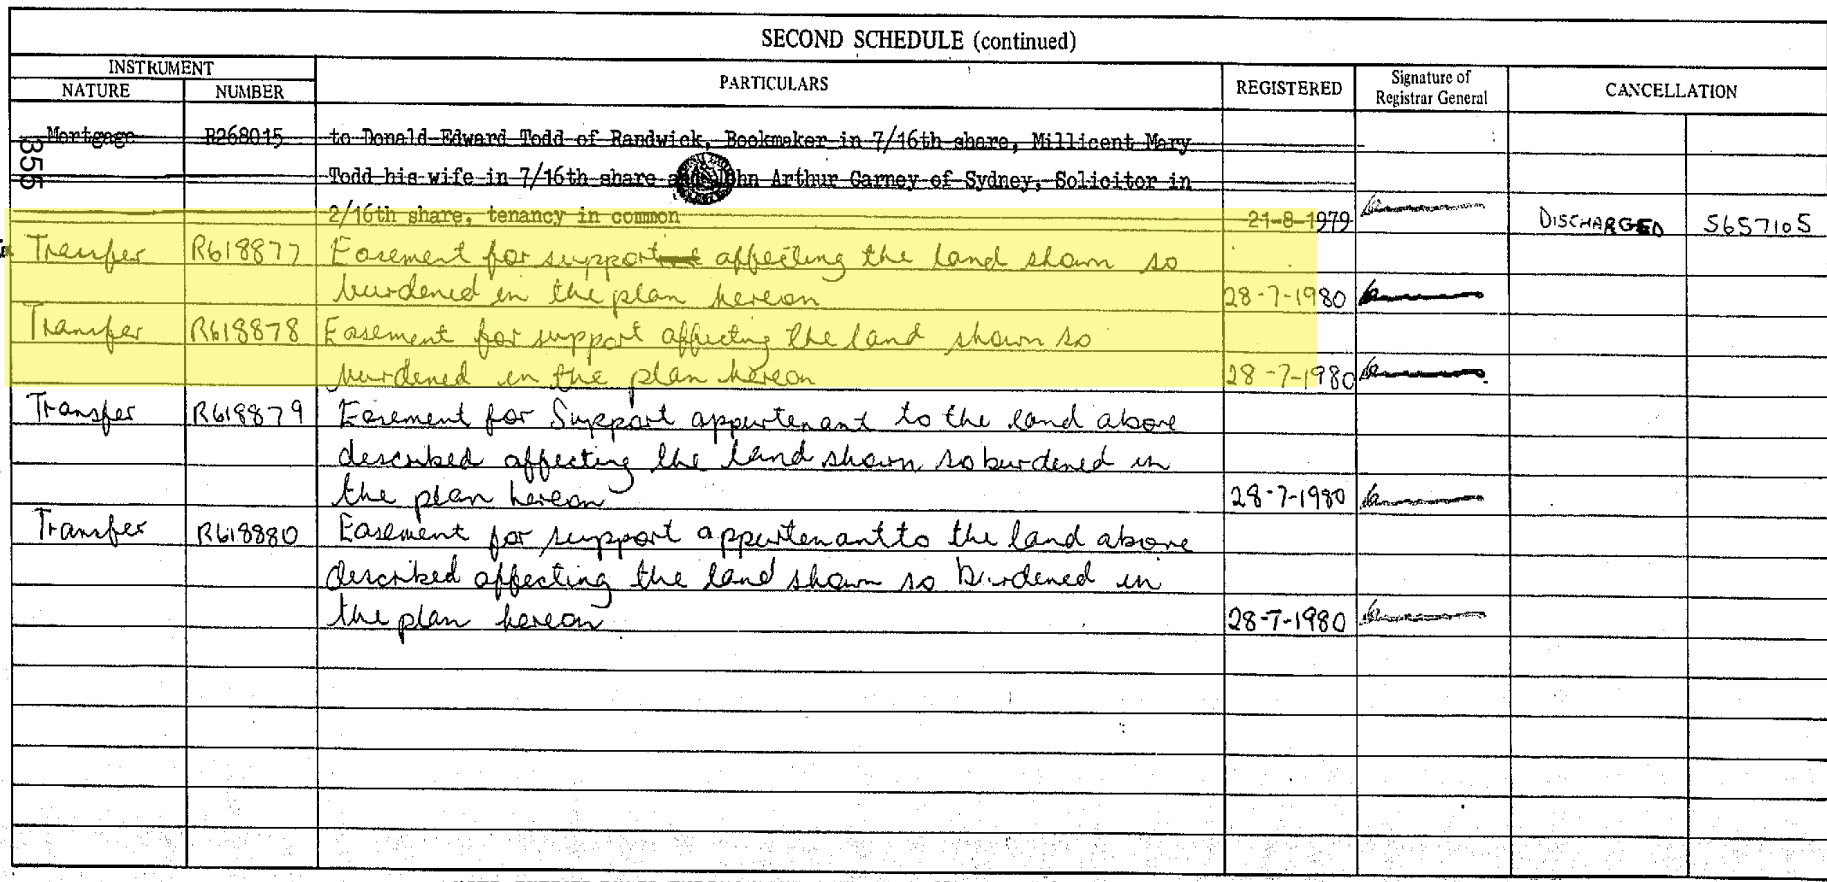 SECOND SCHEDULE (continued)
INSTRUMENT
NATURE NUMBER PARTICULARS REGISTERED Signature of Registrar General CANCELLATION
Mortgage R268015 to Donald Edward Todd of Randwick, Bookmaker in 7/16th share, Millicent Mary
355
Todd his wife in 7/16th share and John Arthur Garney of Sydney, Solicitor in
2/16th share, tenancy in common 21-8-1979 DISCHARGED S657105
Transfer R618877 Easement for support affecting the land shown so
burdened in the plan hereon 28-7-1980
Transfer R618878 Easement for support affecting the land shown so
burdened in the plan hereon 28-7-1980
Transfer R618879 Easement for Support appurtenant to the land above
described affecting the land shown so burdened in
the plan hereon 28-7-1980
Transfer R618880 Easement for support appurtenant to the land above
described affecting the land shown so burdened in
the plan hereon 28-7-1980